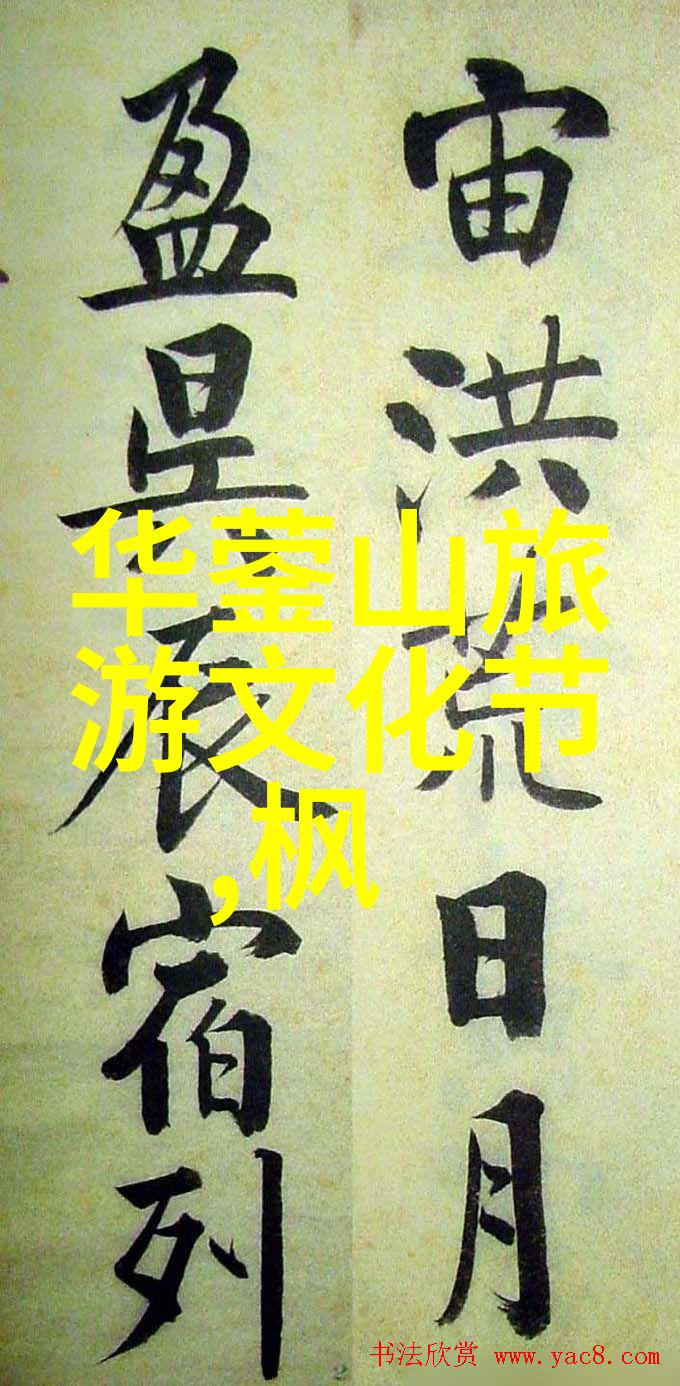 宙洪荒日月
盈昃辰宿列
华蓥山旅
游文化节
,枫
书法欣赏 www.yac8.com